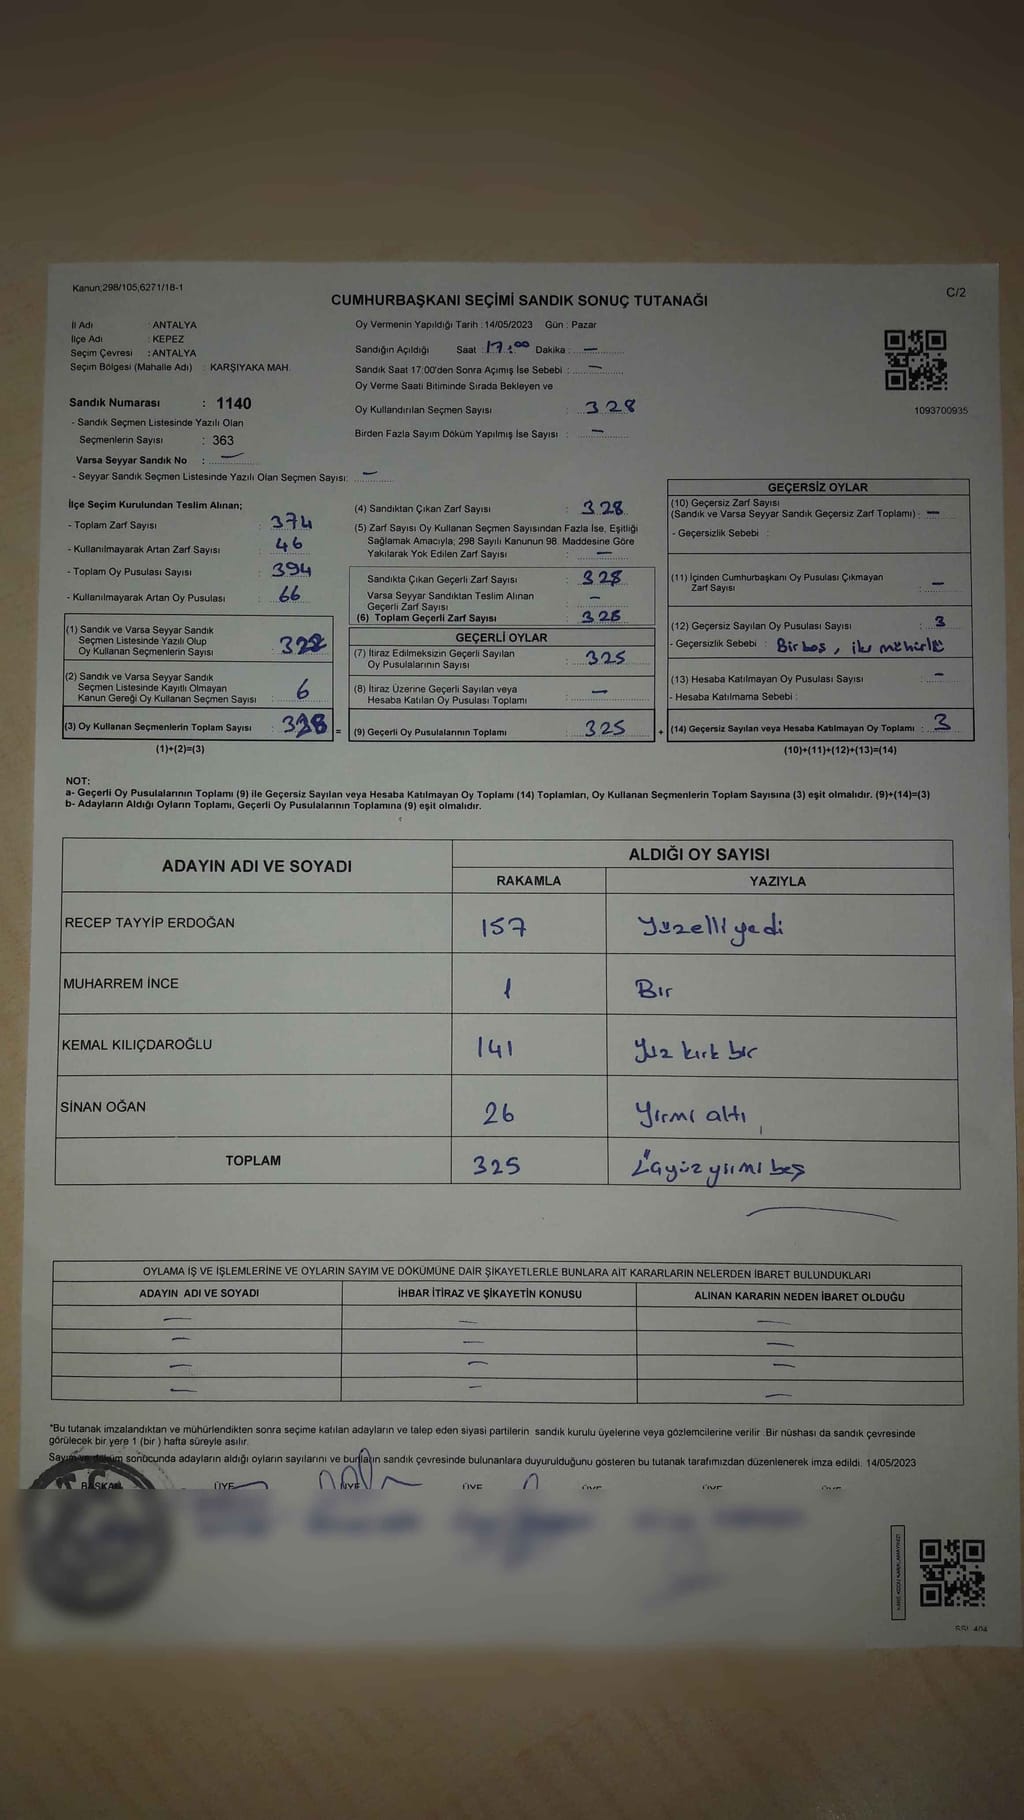 Kanun;298/105,6271/18-1
C/2
CUMHURBAŞKANI SEÇİMİ SANDIK SONUÇ TUTANAĞI
İl Adı : ANTALYA
İlçe Adı : KEPEZ
Seçim Çevresi : ANTALYA
Seçim Bölgesi (Mahalle Adı) : KARŞIYAKA MAH.
Sandık Numarası : 1140
- Sandık Seçmen Listesinde Yazılı Olan
Seçmenlerin Sayısı : 363
Varsa Seyyar Sandık No : —
- Seyyar Sandık Seçmen Listesinde Yazılı Olan Seçmen Sayısı: —
Oy Vermenin Yapıldığı Tarih : 14/05/2023 Gün : Pazar
Sandığın Açıldığı Saat : 17:00 Dakika : —
Sandık Saat 17:00'den Sonra Açımış İse Sebebi : —
Oy Verme Saati Bitiminde Sırada Bekleyen ve
Oy Kullandırılan Seçmen Sayısı : 328
Birden Fazla Sayım Döküm Yapılmış İse Sayısı : —
1093700935
İlçe Seçim Kurulundan Teslim Alınan;
- Toplam Zarf Sayısı : 374
- Kullanılmayarak Artan Zarf Sayısı : 46
- Toplam Oy Pusulası Sayısı : 394
- Kullanılmayarak Artan Oy Pusulası : 66
(1) Sandık ve Varsa Seyyar Sandık
Seçmen Listesinde Yazılı Olup
Oy Kullanan Seçmenlerin Sayısı : 322
(2) Sandık ve Varsa Seyyar Sandık
Seçmen Listesinde Kayıtlı Olmayan
Kanun Gereği Oy Kullanan Seçmen Sayısı : 6
(3) Oy Kullanan Seçmenlerin Toplam Sayısı : 328
(1)+(2)=(3)
(4) Sandıktan Çıkan Zarf Sayısı : 328
(5) Zarf Sayısı Oy Kullanan Seçmen Sayısından Fazla İse, Eşitliği
Sağlamak Amacıyla; 298 Sayılı Kanunun 98. Maddesine Göre
Yakılarak Yok Edilen Zarf Sayısı : —
Sandıkta Çıkan Geçerli Zarf Sayısı : 328
Varsa Seyyar Sandıktan Teslim Alınan
Geçerli Zarf Sayısı : —
(6) Toplam Geçerli Zarf Sayısı : 328
GEÇERLİ OYLAR
(7) İtiraz Edilmeksizin Geçerli Sayılan
Oy Pusulalarının Sayısı : 325
(8) İtiraz Üzerine Geçerli Sayılan veya
Hesaba Katılan Oy Pusulası Toplamı : —
= (9) Geçerli Oy Pusulalarının Toplamı : 325
GEÇERSİZ OYLAR
(10) Geçersiz Zarf Sayısı
(Sandık ve Varsa Seyyar Sandık Geçersiz Zarf Toplamı) : —
- Geçersizlik Sebebi :
(11) İçinden Cumhurbaşkanı Oy Pusulası Çıkmayan
Zarf Sayısı : —
(12) Geçersiz Sayılan Oy Pusulası Sayısı : 3
- Geçersizlik Sebebi : Bir boş, iki mühürlü
(13) Hesaba Katılmayan Oy Pusulası Sayısı : —
- Hesaba Katılmama Sebebi :
+ (14) Geçersiz Sayılan veya Hesaba Katılmayan Oy Toplamı : 3
(10)+(11)+(12)+(13)=(14)
NOT:
a- Geçerli Oy Pusulalarının Toplamı (9) ile Geçersiz Sayılan veya Hesaba Katılmayan Oy Toplamı (14) Toplamları, Oy Kullanan Seçmenlerin Toplam Sayısına (3) eşit olmalıdır. (9)+(14)=(3)
b- Adayların Aldığı Oyların Toplamı, Geçerli Oy Pusulalarının Toplamına (9) eşit olmalıdır.
ADAYIN ADI VE SOYADI ALDIĞI OY SAYISI
RAKAMLA YAZIYLA
RECEP TAYYİP ERDOĞAN 157 Yüzelliyedi
MUHARREM İNCE 1 Bir
KEMAL KILIÇDAROĞLU 141 Yüz kırk bir
SİNAN OĞAN 26 Yirmi altı
TOPLAM 325 Üçyüz yirmi beş
OYLAMA İŞ VE İŞLEMLERİNE VE OYLARIN SAYIM VE DÖKÜMÜNE DAİR ŞİKAYETLERLE BUNLARA AİT KARARLARIN NELERDEN İBARET BULUNDUKLARI
ADAYIN ADI VE SOYADI İHBAR İTİRAZ VE ŞİKAYETİN KONUSU ALINAN KARARIN NEDEN İBARET OLDUĞU
— — —
— — —
— — —
— — —
*Bu tutanak imzalandıktan ve mühürlendikten sonra seçime katılan adayların ve talep eden siyasi partilerin sandık kurulu üyelerine veya gözlemcilerine verilir. Bir nüshası da sandık çevresinde
görülecek bir yere 1 (bir ) hafta süreyle asılır.
Sayım ve döküm sonucunda adayların aldığı oyların sayılarını ve bunların sandık çevresinde bulunanlara duyurulduğunu gösteren bu tutanak tarafımızdan düzenlenerek imza edildi. 14/05/2023
BAŞKAN ÜYE ÜYE ÜYE ÜYE ÜYE ÜYE